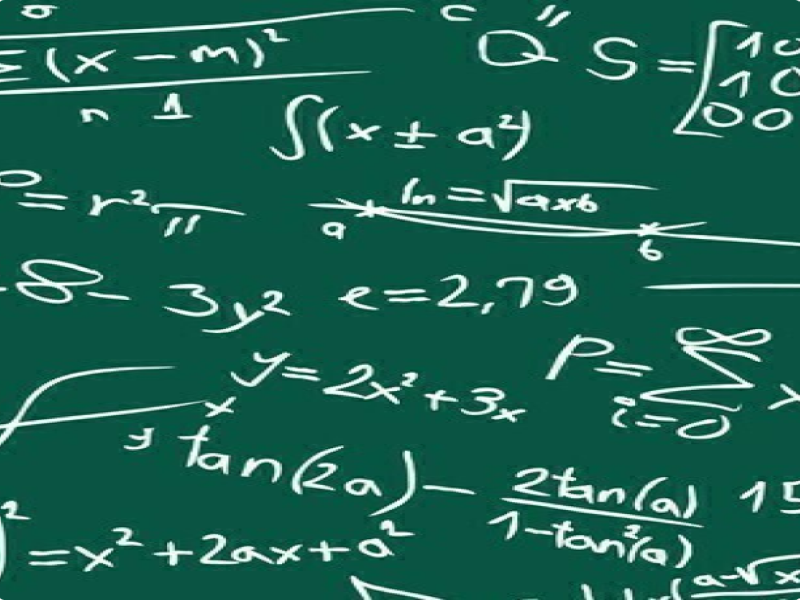 Σ(x - m)²
n 1
Q" S = [10
10
00
∫(x ± a²)
= r²π
ln = √axb
a b
-8- 3y² e=2,79
y=2x²+3x
P=∞Σi=0 x
x
y
tan(2a) - 2tan(a)/1-tan²(a) 15
)²=x²+2ax+a²
a-√x